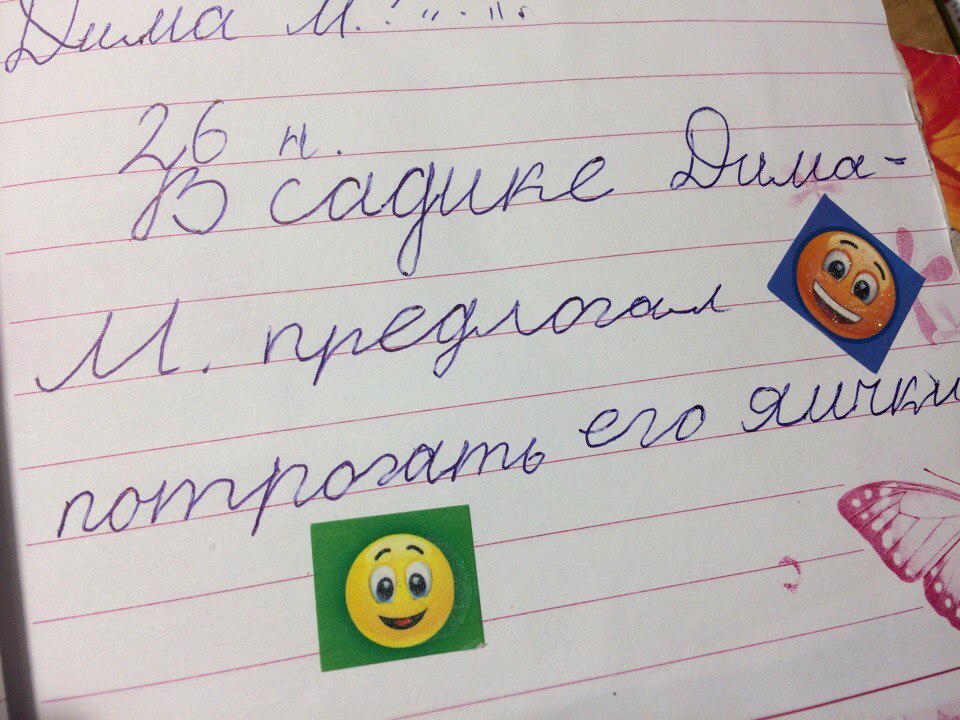 Дима М.
26 н.
В садике Дима-
М. предлогал
потрогать его яички